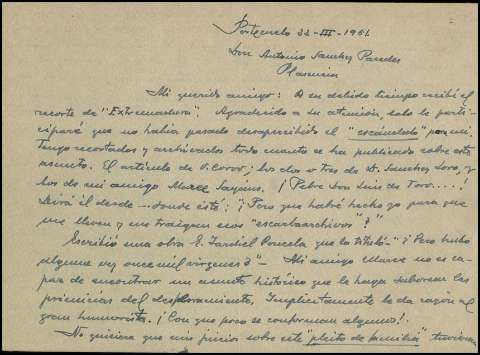 Portezuelo 22-III-1961
Don Antonio Sanchez Paredes
Plasencia
Mi querido amigo: A su debido tiempo recibí el
recorte de "Extremadura". Agradecido a su atención, solo le parti-
ciparé que no había pasado desapercibido el "escándalo" por mí.
Tengo recortados y archivados todo cuanto se ha publicado sobre este
asunto. El artículo de V. Corvo; los dos o tres de D. Sanchez Loro, y
los de mi amigo Marce Sayans. ¡Pobre Don Luis de Toro....!
Dirá él desde... donde esté: "¿Pero que habré hecho yo para que
me lleven y me traigan esos "escarbaarchivos"?"
Escribió una obra E. Jardiel Poncela que la tituló "¿Pero hubo
alguna vez once mil vírgenes?" - Mi amigo Marce no es ca-
paz de encontrar un asunto histórico que le haga saborear las
primicias del desfloramiento. Implicitamente le da razón al
gran humorista. ¡Con que poco se conforman algunos!
No quisiera que mis juicios sobre este "pleito de familia" tuvieran